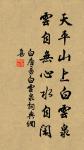 天平山上白雲泉
雲自無心水自閑
白居易白雲泉詞典網